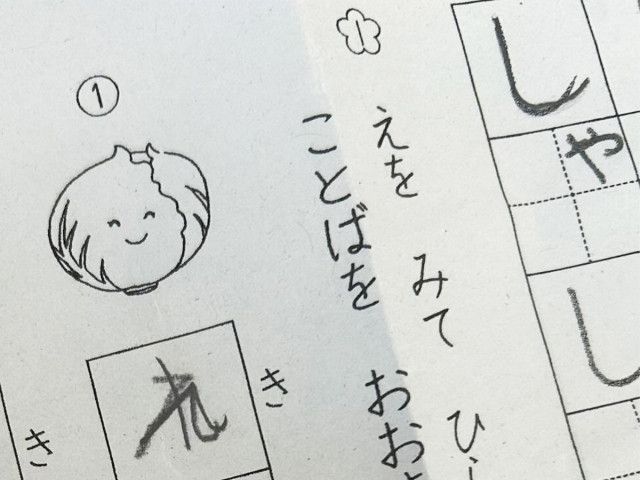 しゃし
1
えを みて ひ
ことばを おお
①
き
き